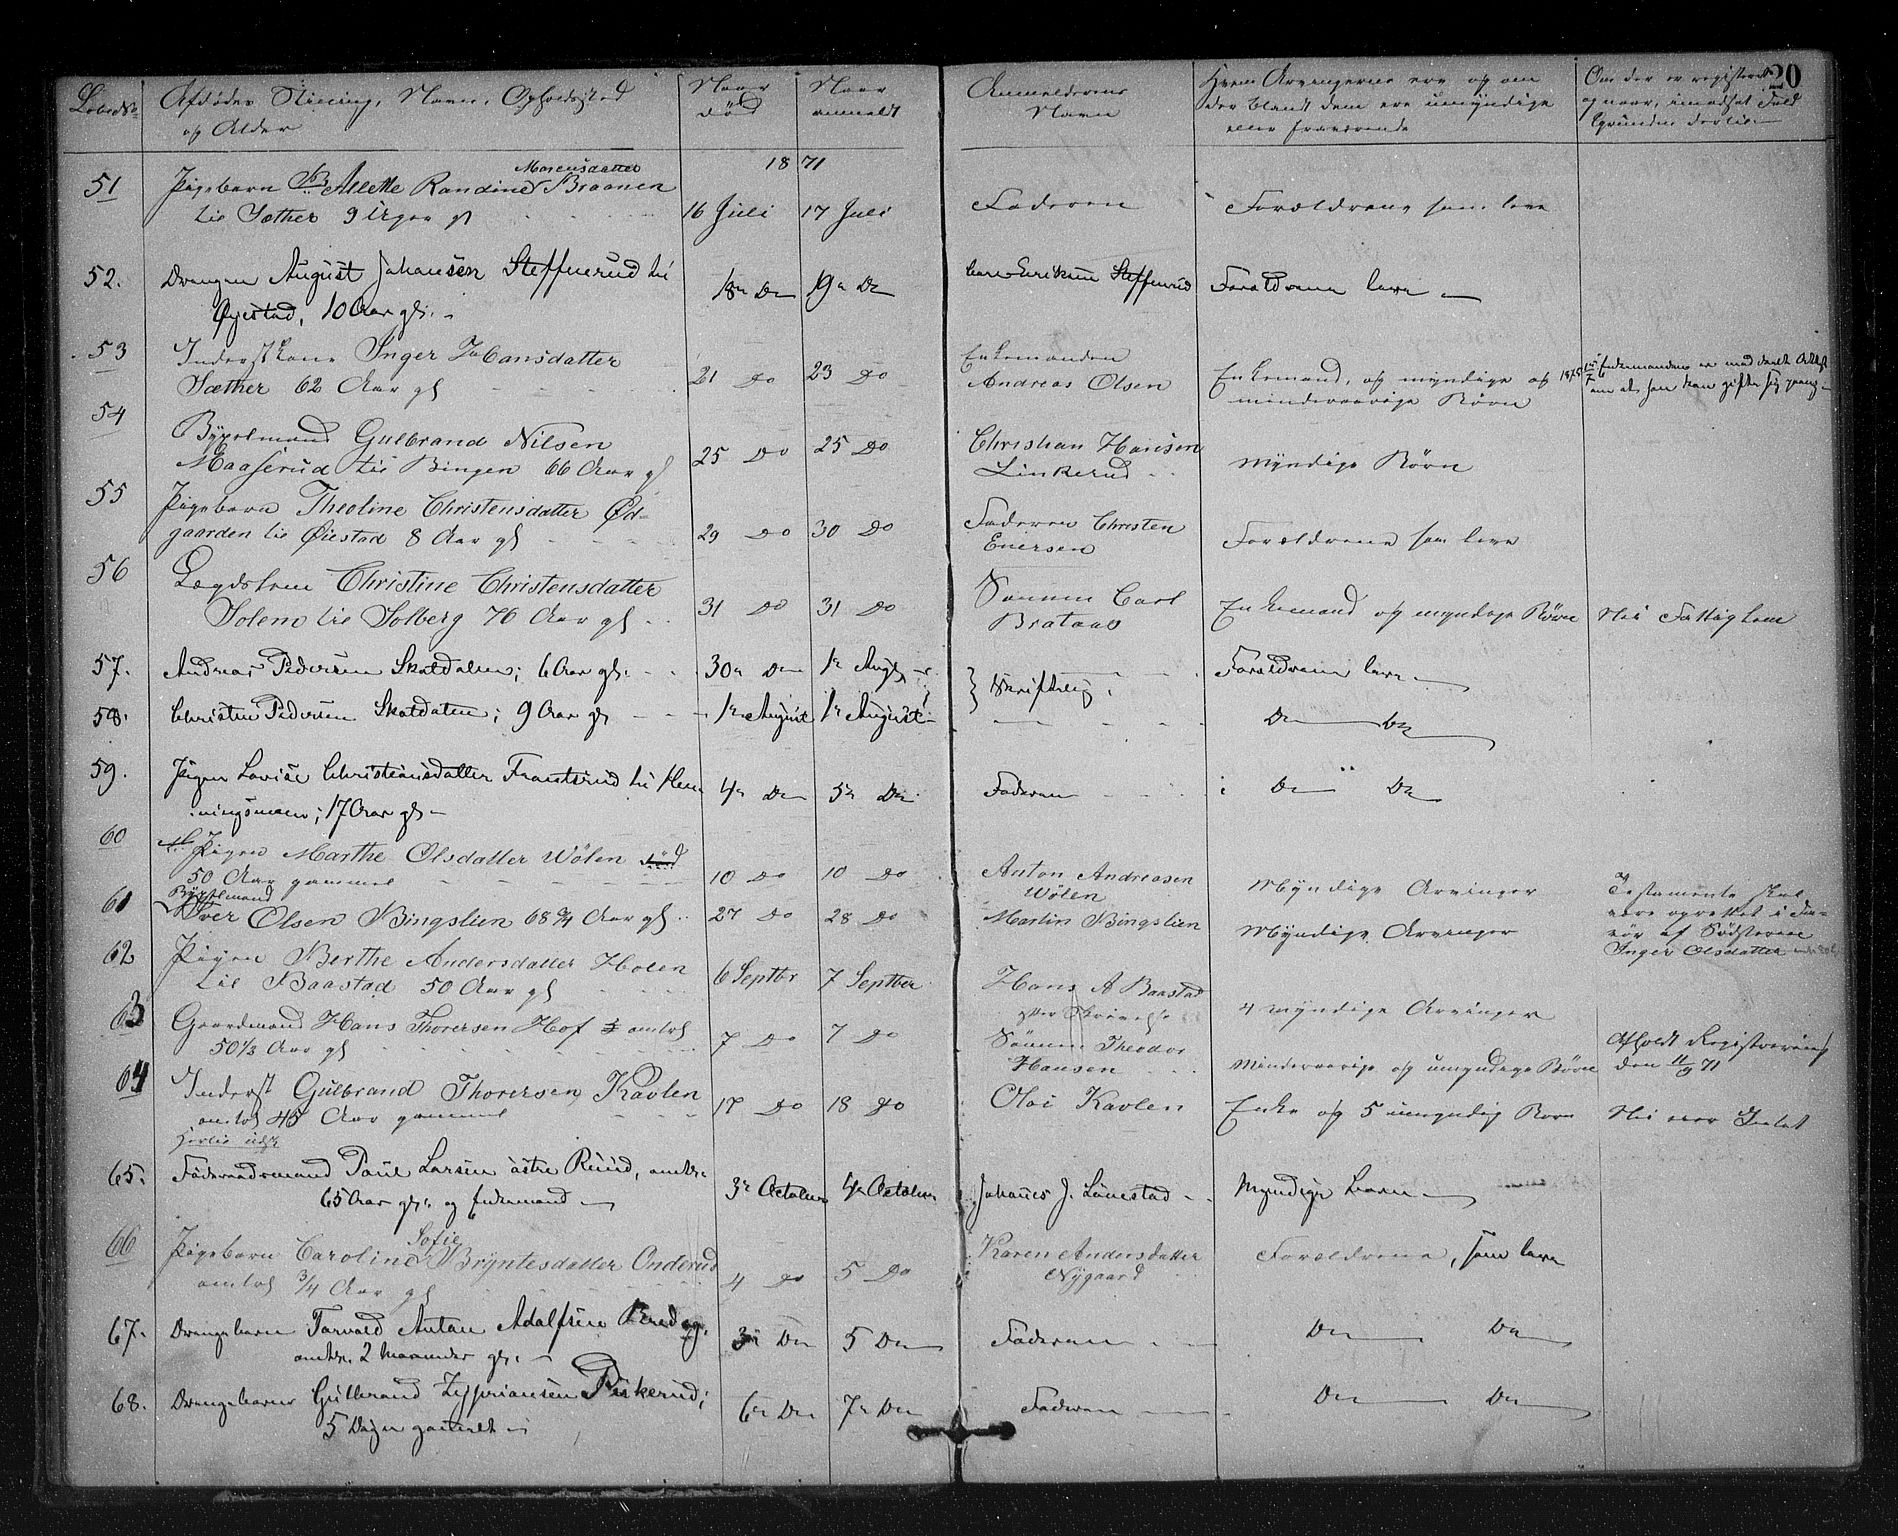 Løbeds-
Afdødes Stilling, Navn, Opholdssted
og Alder
Naar
død
Naar
anmeldt
Anmelderens
Navn
Hvem Arvingerne ere og om
der blandt dem ere umyndige
eller fraværende
Om der er registeret
og naar, i modsat Fald
Grunden dertil
20
18 71
51
Marensdatter
Pigebarn Alette Randine Braanen
til Sæther 9 Uger gl
16 Juli
17 Juli
Faderen
Forældrene som leve
52.
Drengen August Johansen Steffenrud til
Øyestad, 10 Aar gl.
18de Do
19de Do
Eriksen Steffenrud
Forældrene leve
53
Inderstkone Inger Johansdatter
Sæther 62 Aar gl
21 Do
23 Do
Enkemanden
Andreas Olsen
Enkemand, og myndige og
mindreaarige Børn
1875 Enkemanden er med delt Attest
om at han kan gifte sig paany
54
Bygselmand Gulbrand Nilsen
Maaserud til Bingen 66 Aar gl
25 Do
25 Do
Christian Hansen
Linkerud
Myndige Børn
55
Pigebarn Theoline Christensdatter Ød-
gaarden til Øiestad 8 Aar gl
29 Do
30 Do
Faderen Christen
Enersen
Forældrene som leve
56
Lægdslem Christine Christensdatter
Solem til Solberg 76 Aar gl
31 Do
31 Do
Sønnen Carl
Brataas
Enkemand og myndige Børn
Nei Fattiglem
57.
Andreas Pedersen Skatdalen; 6 Aar gl.
30te Do
1te Augt
Skriftelig
Forældrene leve
58.
Christen Pedersen Skatdalen; 9 Aar gl
1te August
1te August
Do Do
59.
Pigen Lovise Christiansdatter Frantsrud til Hen-
ningsmoen; 17 Aar gl
4de Do
5te Do
Faderen
Do " Do
60
Pigen Marthe Olsdatter Wølen
50 Aar gammel
10 Do
10 Do
Anton Andreasen
Wølen
Myndige Arvinger
og
Testamente skal
være oprettet i Fa-
vør af Søsteren
Inger Olsdatter
61
Bygselmand
Iver Olsen Bingslien 68 3/4 Aar gl
27 Do
28 Do
Martin Bingslien
Myndige Arvinger
62
Pigen Berthe Andersdatter Holen
til Baastad 50 Aar gl
6 Septbr
7 Septber
Hans A Baastad
efter Skrivelse
4 myndige Arvinger
63
Gaardmand Hans Thorersen Hof omtrt
50 1/3 Aar gl
7 Do
7 Do
Sønnen Theodor
Hansen
Mindreaarige og umyndige Børn
Afholdt Registrering
den 11/9 71
64
Inderst Gulbrand Thorersen Kavlen
omtrt 45 Aar gammel
17 Do
18 Do
Oloi Kavlen
Enke og 5 umyndig Børn
Nei eier Intet
65.
Føderaadsmand Paul Larsen østre Ruud, omtr.
65 Aar gl. og Enkemand
3de October
4de October
Johannes J. Lunestad
Myndige Børn
66
Sofie
Pigebarn Caroline Bryntesdatter Onderud
omtrt 3/4 Aar gl
4 Do
5 Do
Karen Andersdatter
Nygaard
Forældrene, som leve
67.
Drengebarn Torvald Anton Adolfsen
omtr. 2 Maaneder gl.
3de Do
5 Do
Faderen
Do Do
68.
Drengebarn Gulbrand Zypriansen Piskerud;
5 Dage gammelt
6te Do
7de Do
Faderen
Do Do